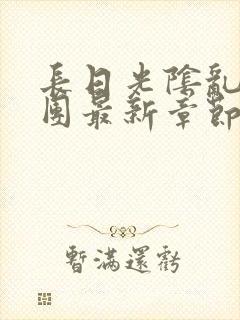 長日光陰亂
團最新章節
暫滿還虧